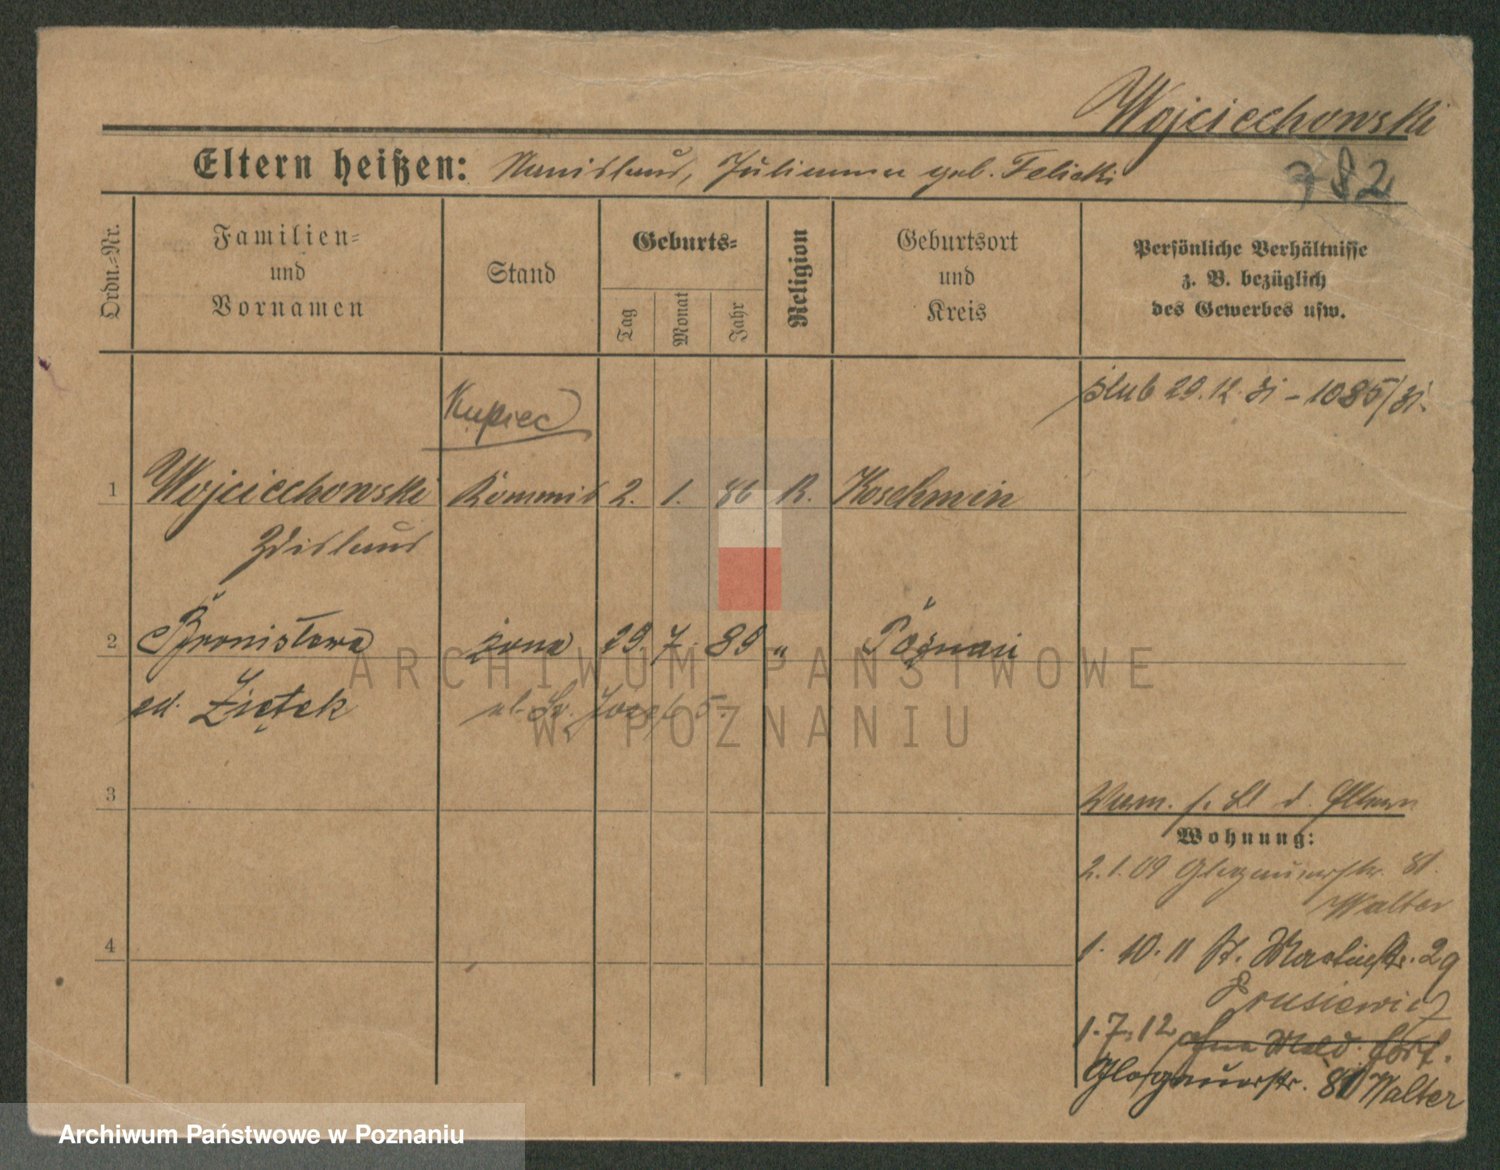 Wojciechowski
Eltern heißen: Stanislaus, Julianna geb. Felicki
782
Ordn.=Nr.
Familien=
und
Vornamen
Stand
Geburts=
Tag
Monat
Jahr
Religion
Geburtsort
und
Kreis
Persönliche Verhältnisse
z. B. bezüglich
des Gewerbes usw.
ślub 29.12.31 – 1085/31.
Kupiec
1 Wojciechowski Kommis 2. 1. 86 R. Koschmin
Zdislaus
2 Bronisława żona 29. 7. 89 " Poznań
ul. Św. Józefa 5.
Ziętek
3
d. Eltern
Wohnung:
2.1.09 Glogauerstr. 81
Walter
4
1. 10. 11 St. Martinstr. 29
Prusiewicz
1.7.12 ohne Meld. fort.
Glogauerstr. 81 Walter
ARCHIWUM PAŃSTWOWE
W POZNANIU
Archiwum Państwowe w Poznaniu